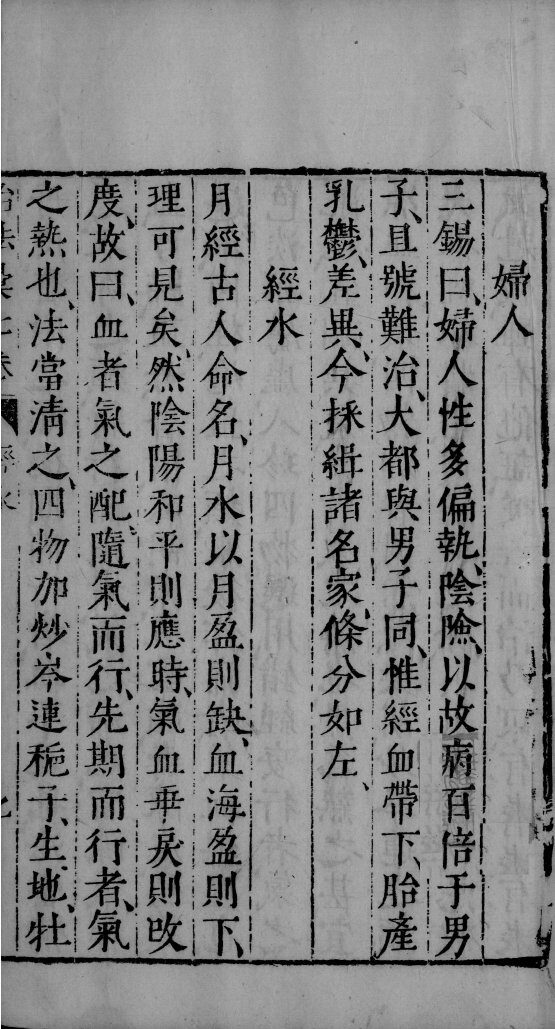 婦人
三錫曰、婦人性多偏執、陰險、以故病百倍于男
子、且號難治、大都與男子同、惟經血帶下、胎產
乳鬱、差異、今採緝諸名家、條分如左、
經水
月經古人命名、月水以月盈則缺、血海盈則下、
理可見矣、然陰陽和平則應時、氣血乖戾則改
度、故曰、血者氣之配、隨氣而行、先期而行者、氣
之熱也、法當清之、四物加炒岑連梔子、生地、牡